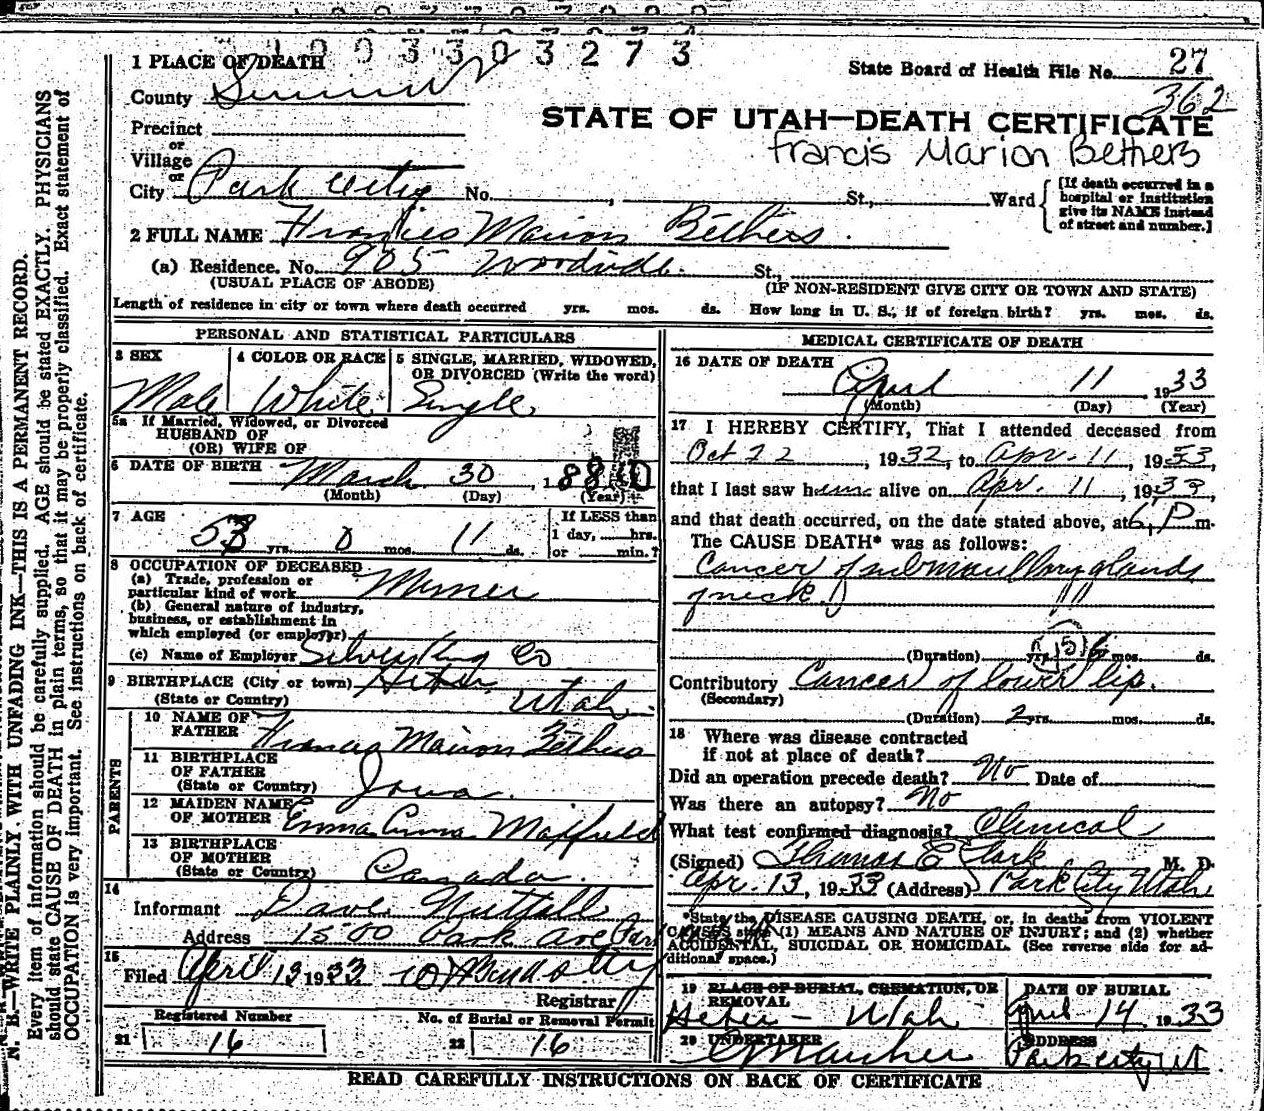 1 0 0 3 3 0 3 2 7 3
1 PLACE OF DEATH
State Board of Health File No. 27
362
County Summit
STATE OF UTAH—DEATH CERTIFICATE
Francis Marion Bethers
Precinct
or
Village
or
City Park City No. , St., Ward
[If death occurred in a hospital or institution give its NAME instead of street and number.]
2 FULL NAME Francies Marion Bethers.
(a) Residence. No. 905 Woodside. St.,
(USUAL PLACE OF ABODE) (IF NON-RESIDENT GIVE CITY OR TOWN AND STATE)
Length of residence in city or town where death occurred yrs. mos. ds. How long in U. S., if of foreign birth? yrs. mos. ds.
PERSONAL AND STATISTICAL PARTICULARS
3 SEX 4 COLOR OR RACE 5 SINGLE, MARRIED, WIDOWED,
OR DIVORCED (Write the word)
Male White Single
5a If Married, Widowed, or Divorced
HUSBAND OF
(OR) WIFE OF
6 DATE OF BIRTH March 30, 1880
(Month) (Day) (Year)
7 AGE If LESS than
53 yrs. 0 mos. 11 ds. 1 day, hrs.
or min.?
8 OCCUPATION OF DECEASED
(a) Trade, profession or
particular kind of work Miner
(b) General nature of industry,
business, or establishment in
which employed (or employer)
(c) Name of Employer Silver King Co
9 BIRTHPLACE (City or town) Heber
(State or Country) Utah.
PARENTS
10 NAME OF
FATHER Francis Marion Bethers
11 BIRTHPLACE
OF FATHER
(State or Country) Iowa.
12 MAIDEN NAME
OF MOTHER Emma Maxfield
13 BIRTHPLACE
OF MOTHER
(State or Country) Canada.
14
Informant Dave Nuttall
Address 1500 Park Ave, Park
15
Filed April 13 1933
Registrar
Registered Number No. of Burial or Removal Permit
21 16 22 16
MEDICAL CERTIFICATE OF DEATH
16 DATE OF DEATH
April 11 1933
(Month) (Day) (Year)
17 I HEREBY CERTIFY, That I attended deceased from
Oct 22, 1932, to Apr. 11, 1933,
that I last saw him alive on Apr. 11, 1933,
and that death occurred, on the date stated above, at 6, P m.
The CAUSE DEATH* was as follows:
Cancer of submaxillary glands
of neck.
(Duration) yrs. 6 mos. ds.
Contributory Cancer of lower lip.
(Secondary)
(Duration) 2 yrs. mos. ds.
18 Where was disease contracted
if not at place of death?
Did an operation precede death? No Date of
Was there an autopsy? No
What test confirmed diagnosis? Clinical
(Signed) Thomas E Clark M. D.
Apr. 13, 1933 (Address) Park City Utah
*State the DISEASE CAUSING DEATH, or, in deaths from VIOLENT
CAUSES state (1) MEANS AND NATURE OF INJURY; and (2) whether
ACCIDENTAL, SUICIDAL OR HOMICIDAL. (See reverse side for ad-
ditional space.)
19 PLACE OF BURIAL, CREMATION, OR DATE OF BURIAL
REMOVAL
Heber - Utah April 14 1933
20 UNDERTAKER ADDRESS
Park City Ut
READ CAREFULLY INSTRUCTIONS ON BACK OF CERTIFICATE
N. B.—WRITE PLAINLY, WITH UNFADING INK—THIS IS A PERMANENT RECORD.
Every item of information should be carefully supplied. AGE should be stated EXACTLY. PHYSICIANS
should state CAUSE OF DEATH in plain terms, so that it may be properly classified. Exact statement of
OCCUPATION is very important. See instructions on back of certificate.